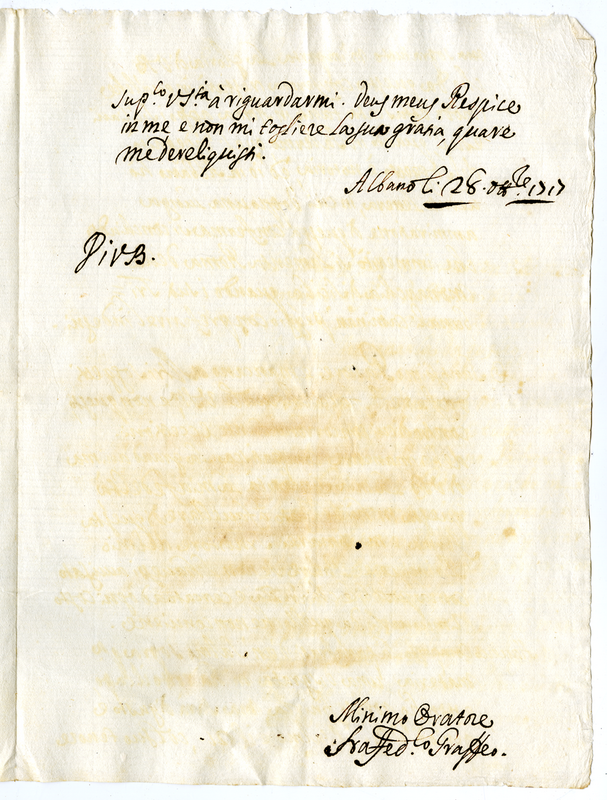 sup.co V S.tà à riguardarmi. Deus meus Respice
in me e non mi togliere la sua grãtia, quare
me dereliquisti.
Albano li 28. 1717
Di V B.
Minimo Oratore